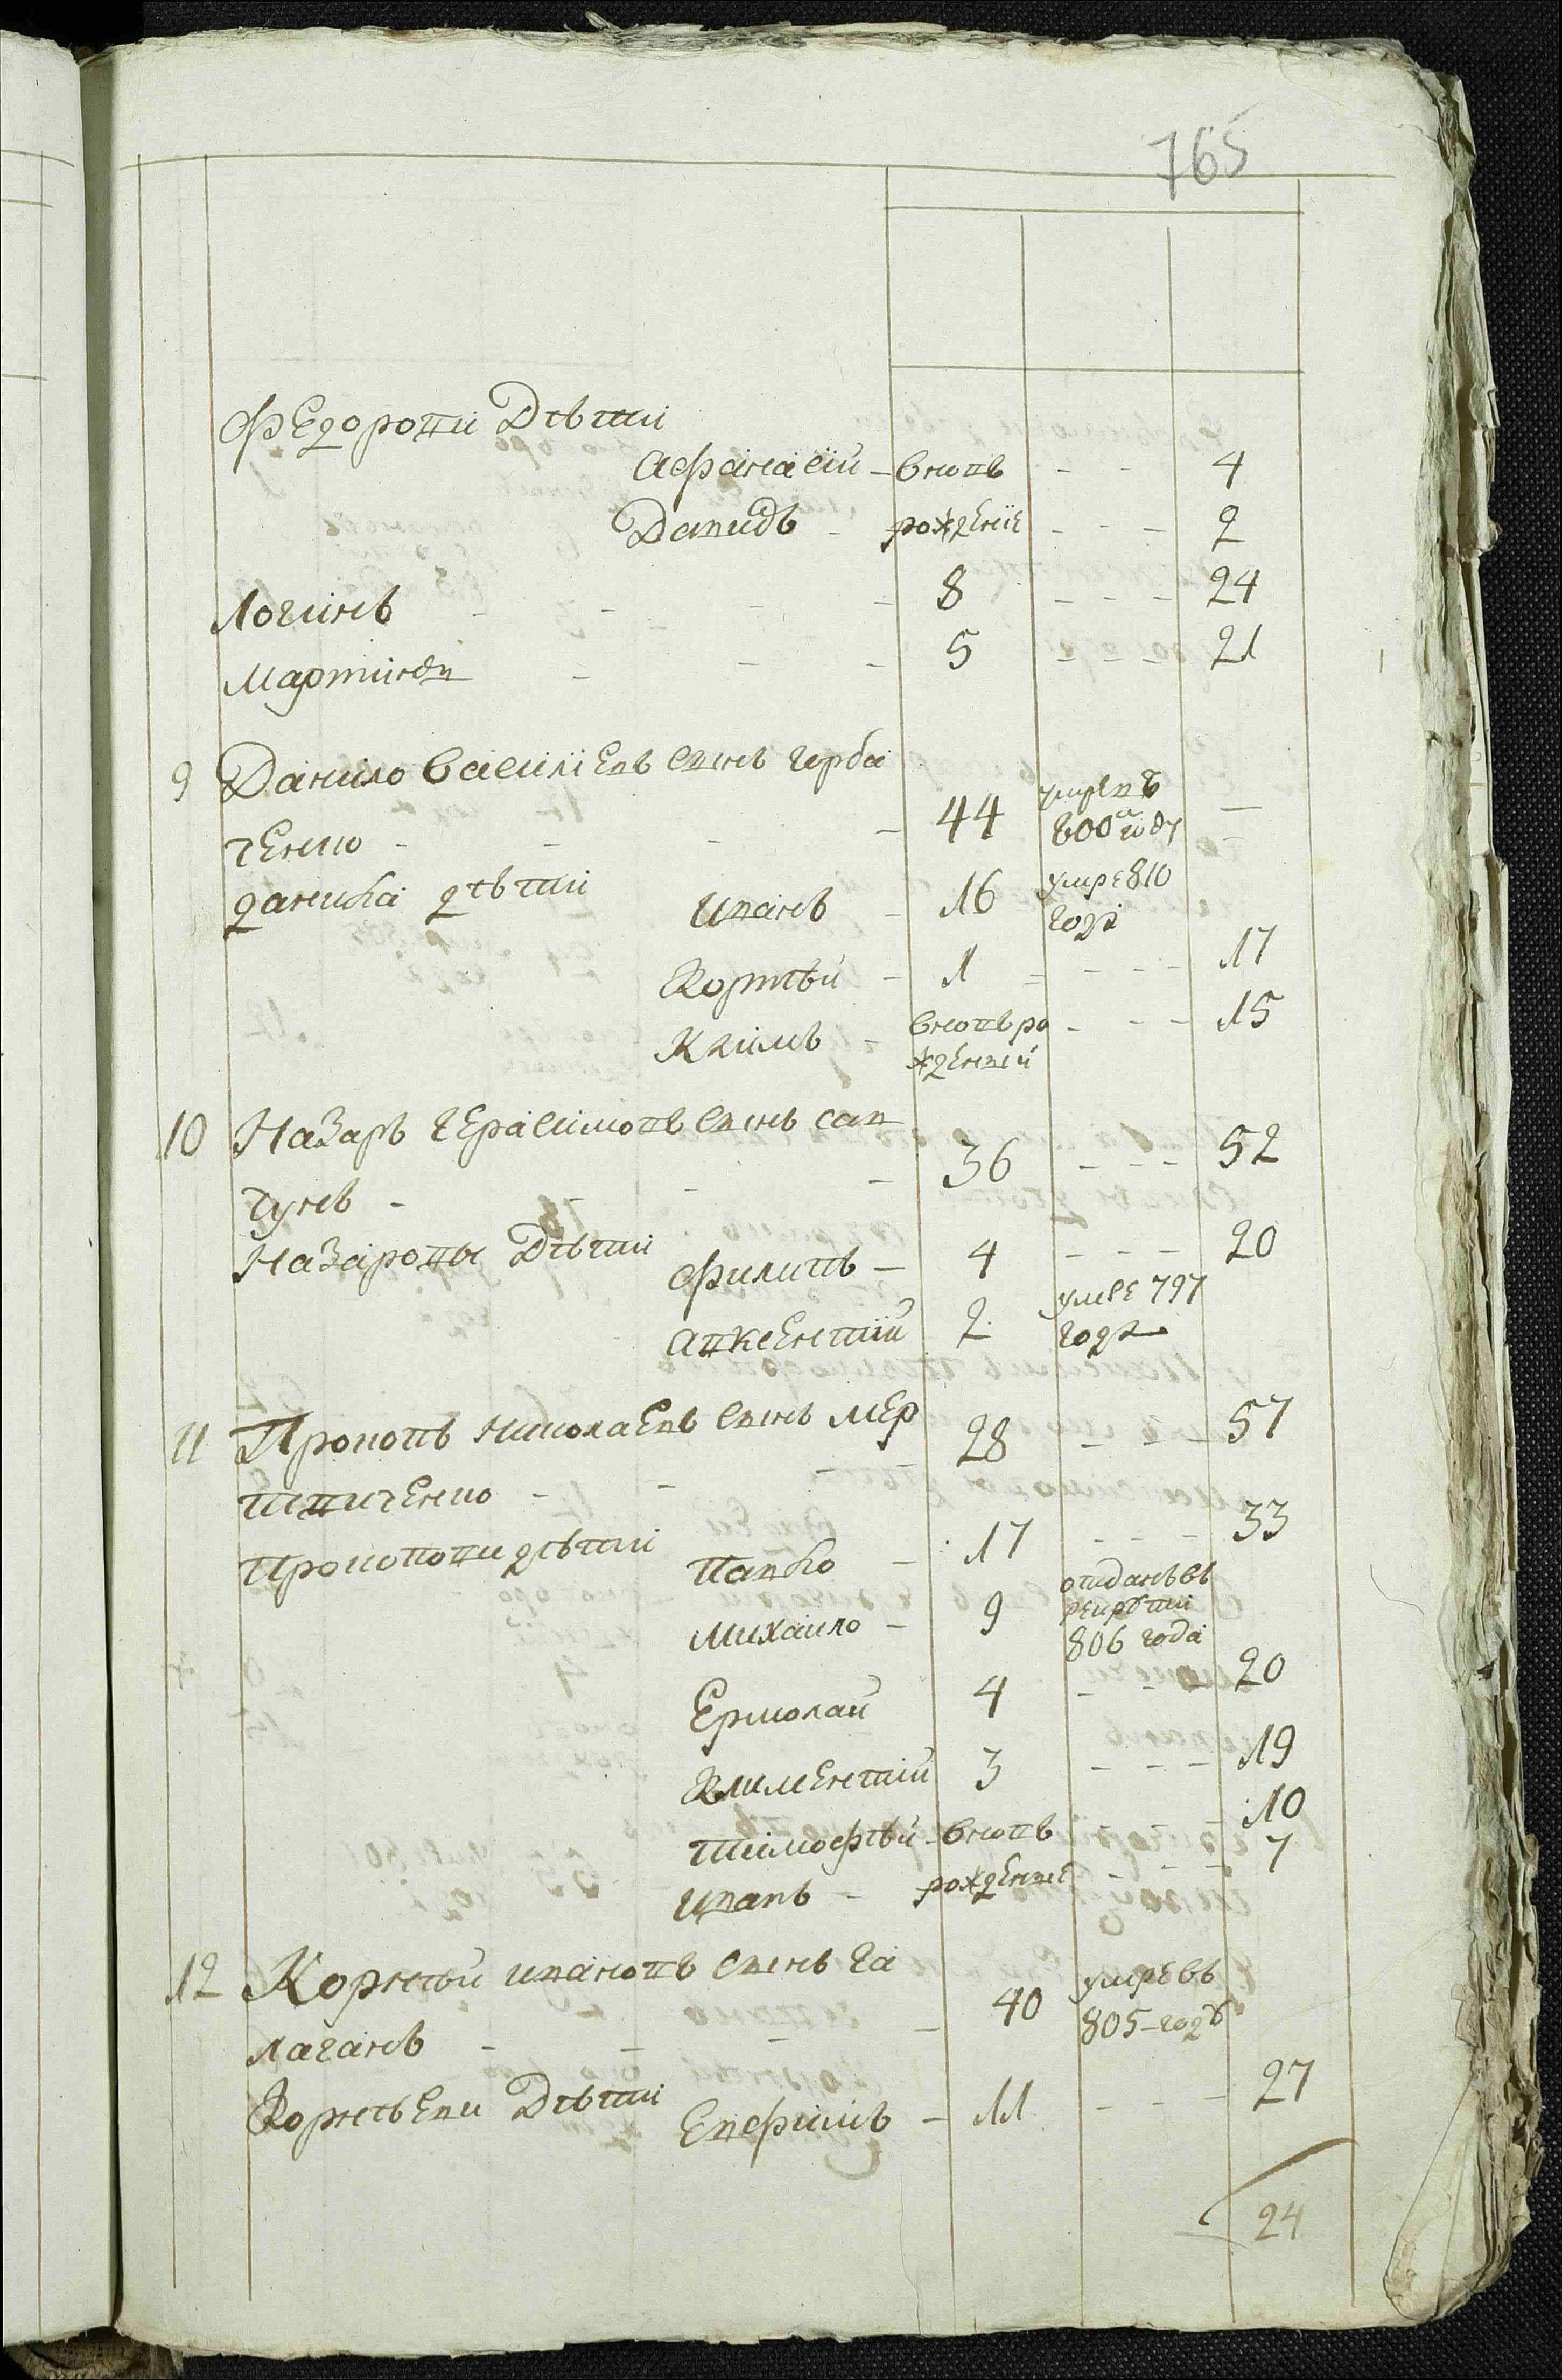 765
Федоровы Дѣти
Афанасiй - вновь - - 4
Давидъ - рожденiе - - - 2
Логинъ - - - - 8 - - - 24
Мартинъ - - - 5 - - - 21
9 Данило Васильевъ сынъ горба
ченко - - - - 44 умръ въ 800м году -
данила дѣти
Иванъ - 16 умре 810 года
Корнѣй - 1 - - - 17
Климъ - вновь ро - - - 15
жденный
10 Назаръ Герасимовъ сынъ сав
чукъ - - - 36 - - - 52
Назаровы Дѣти
Филипъ - 4 - - - 20
Авксентiй 2 умре 797 года
11 Прокопъ николаевъ сынъ мер
твиченко - - 28 - - - 57
Прокоповы дѣти
Павло - 17 - - - 33
Михайло - 9 отданъ въ рекруты 806 года
Ермолай 4 - - - 20
Климентiй 3 - - - 19
Тимофѣй - вновь - - - 10
Иванъ - рожденые - - - 7
12 Корнѣй ивановъ сынъ га
лаганъ - - - - 40 умре въ 805 - годѣ
Корнѣевы Дѣти
Евфимъ - 11 - - - 27
24